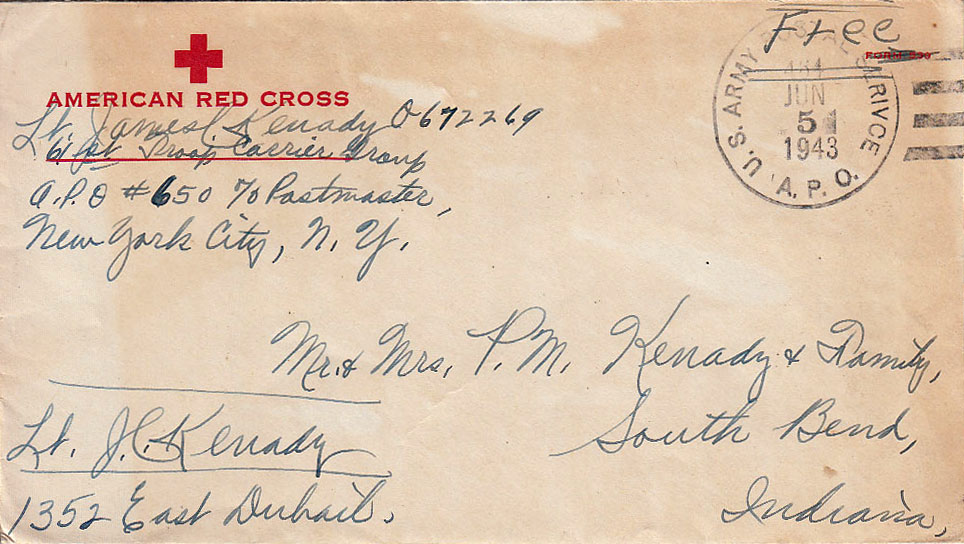 Free
FORM 539
AMERICAN RED CROSS
Lt. James C. Kenady O672269
61st Troop Carrier Group
A.P.O #650 % Postmaster,
New York City, N. Y.
U.S. ARMY POSTAL SERIVCE
JUN
5
1943
A.P.O.
Mr. & Mrs. P. M. Kenady & Family,
Lt. J.C. Kenady
South Bend,
1352 East Duhail.
Indiana,